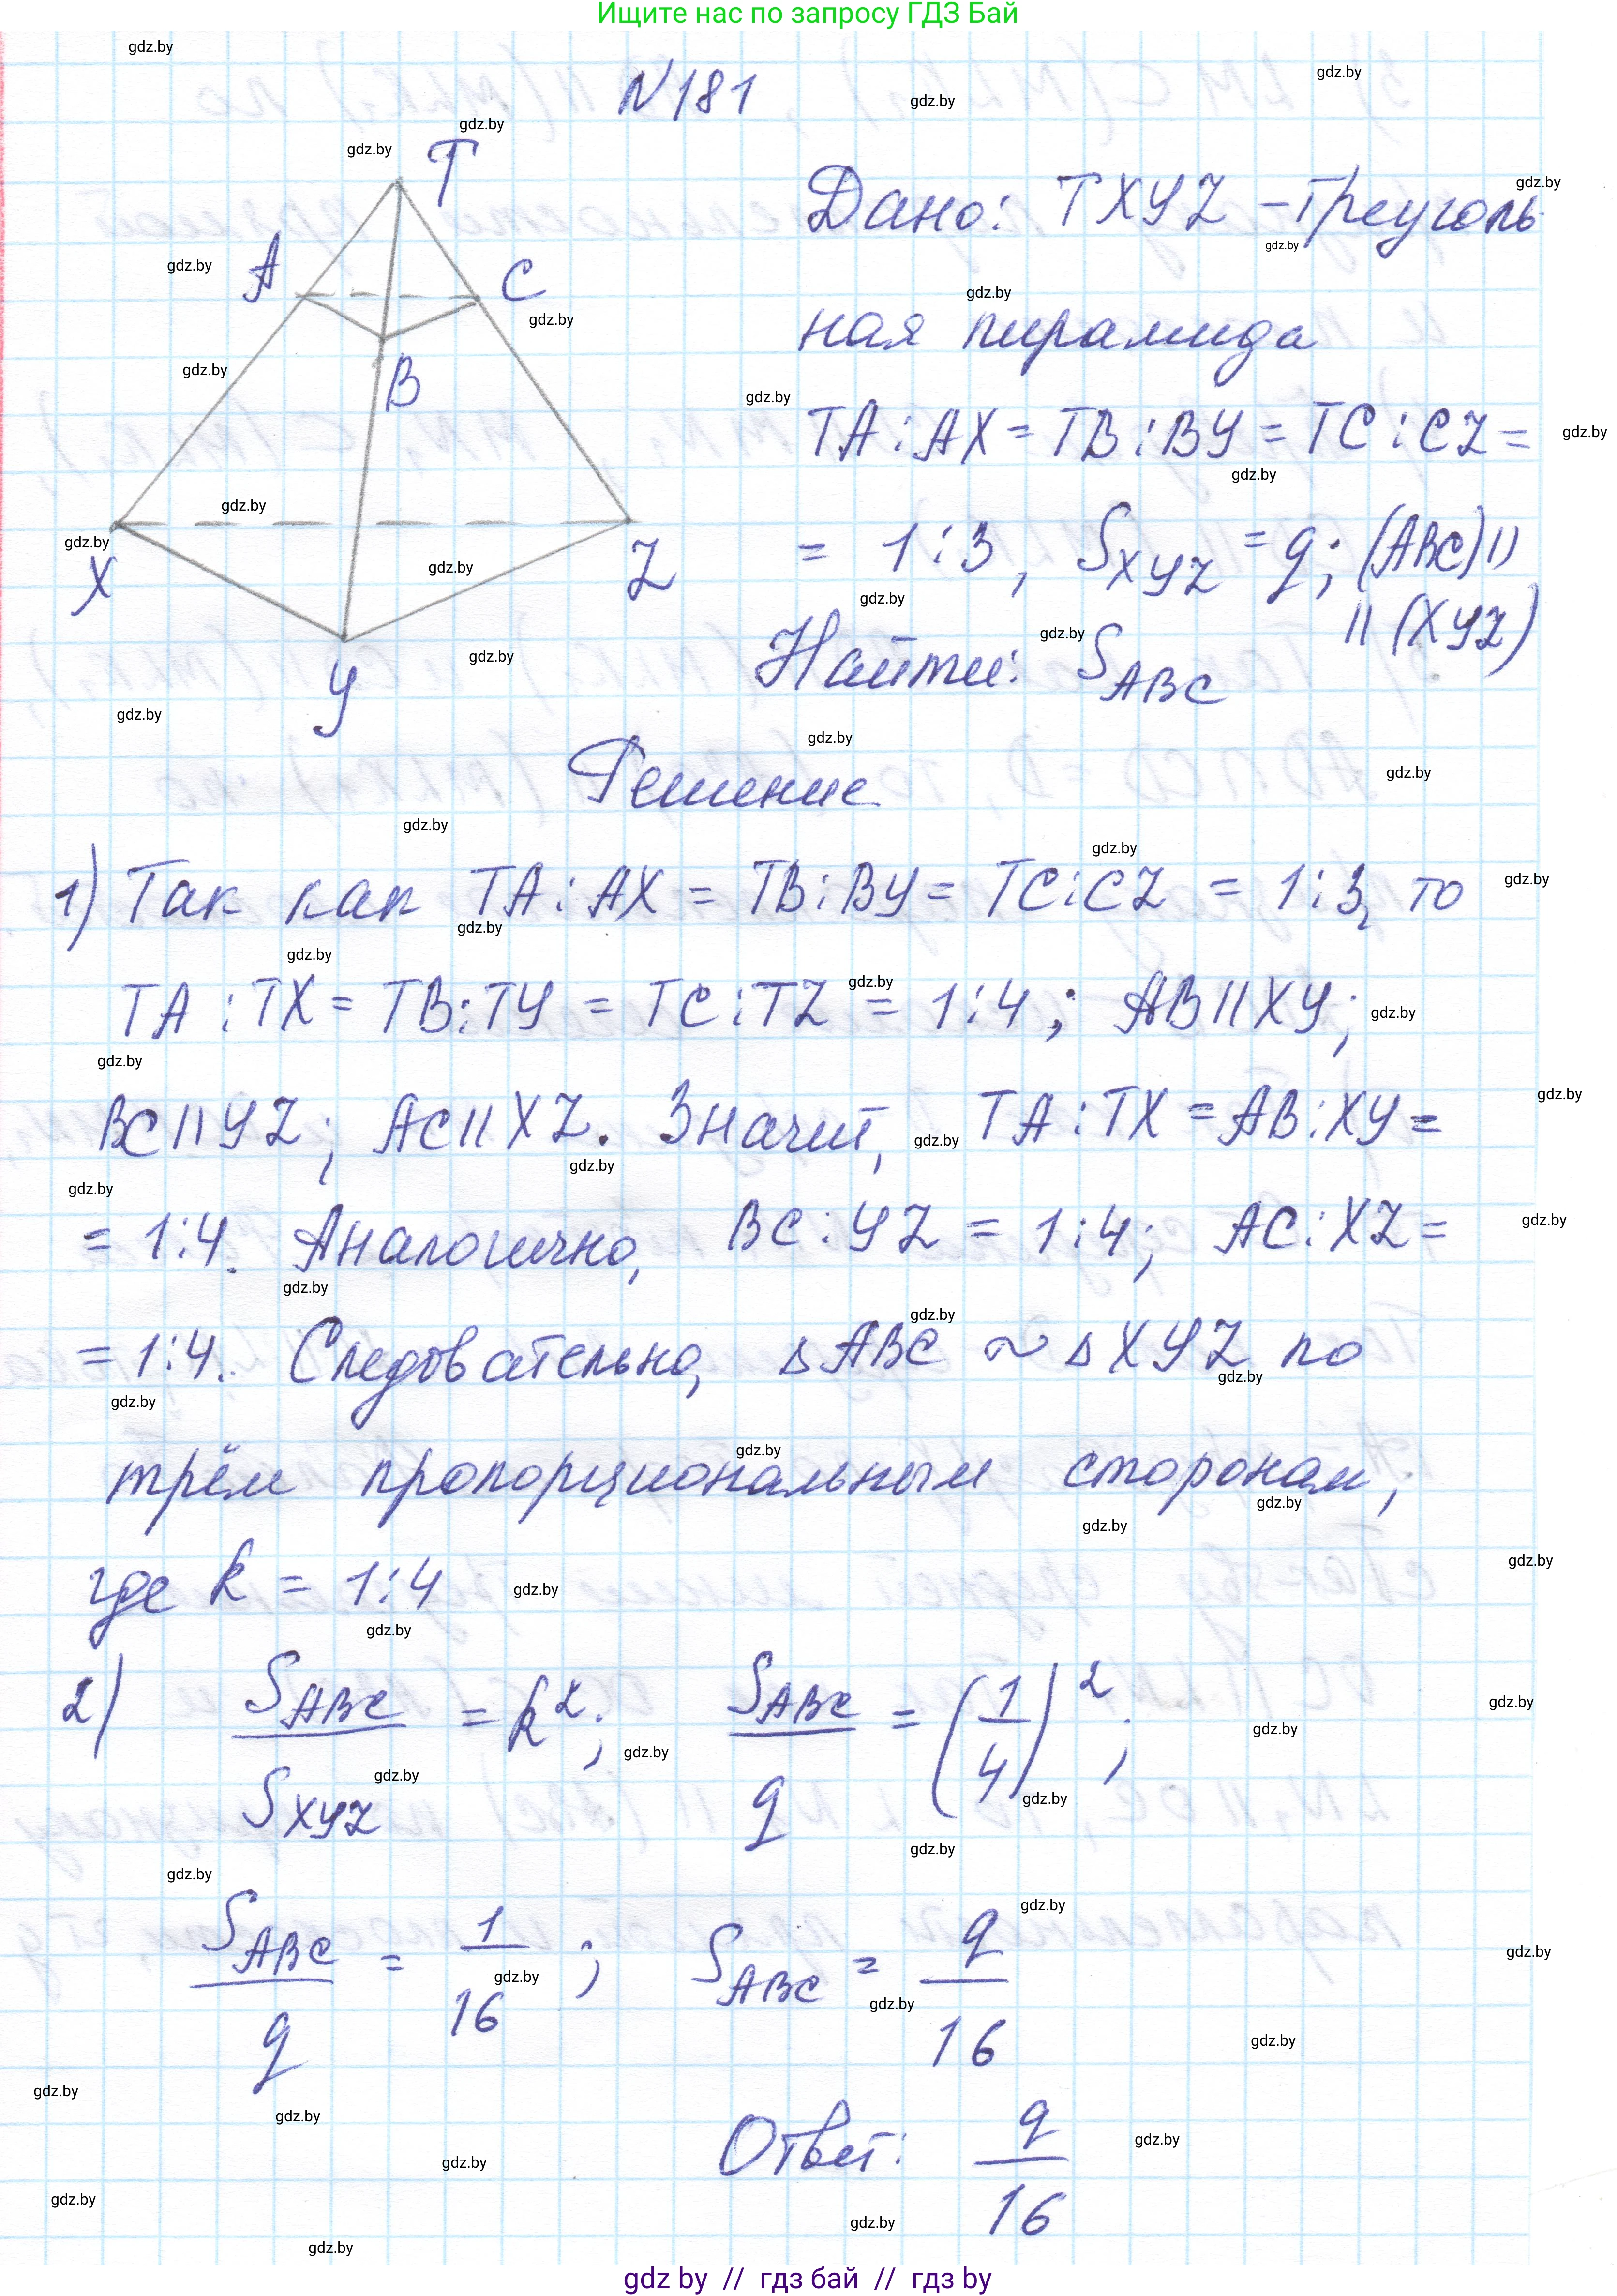 Ищите нас по запросу ГДЗ Бай
N181
T
A
C
B
X
Z
Y
Дано: TXYZ – треуголь
ная пирамида
TA : AX = TB : BY = TC : CZ =
= 1 : 3, S_XYZ = q; (ABC) ||
|| (XYZ)
Найти: S_ABC
Решение
1) Так как TA : AX = TB : BY = TC : CZ = 1 : 3, то
TA : TX = TB : TY = TC : TZ = 1 : 4; AB || XY;
BC || YZ; AC || XZ. Значит, TA : TX = AB : XY =
= 1 : 4. Аналогично, BC : YZ = 1 : 4; AC : XZ =
= 1 : 4. Следовательно, △ABC ~ △XYZ по
трём пропорциональным сторонам,
где k = 1 : 4
2) S_ABC / S_XYZ = k²; S_ABC / q = (1/4)²;
S_ABC / q = 1/16; S_ABC = q/16
Ответ: q/16
gdz by // гдз бай // гдз by